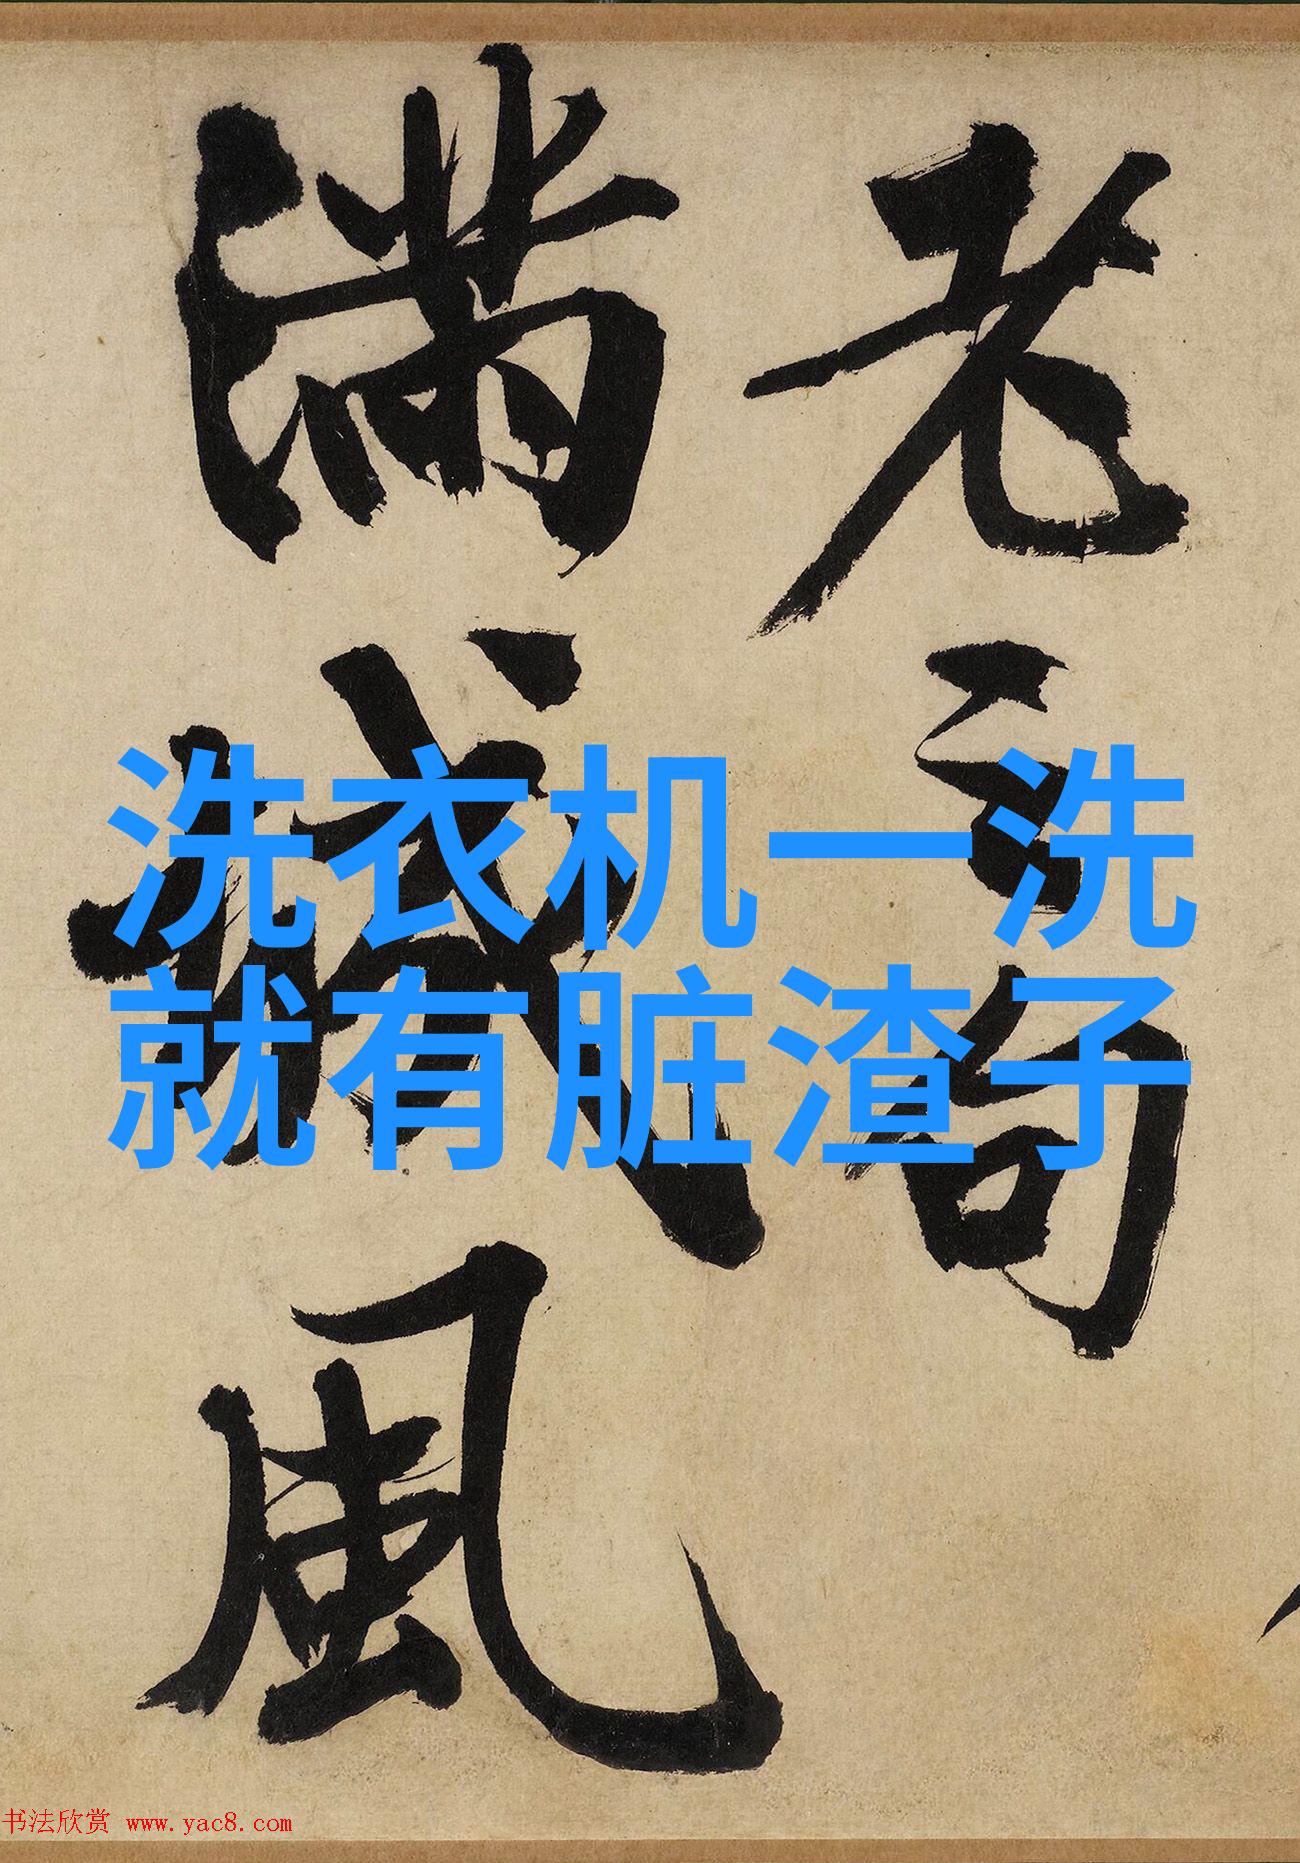 洗衣机一洗
就有脏渣子
老
句
满
城
風
书法欣赏 www.yac8.com